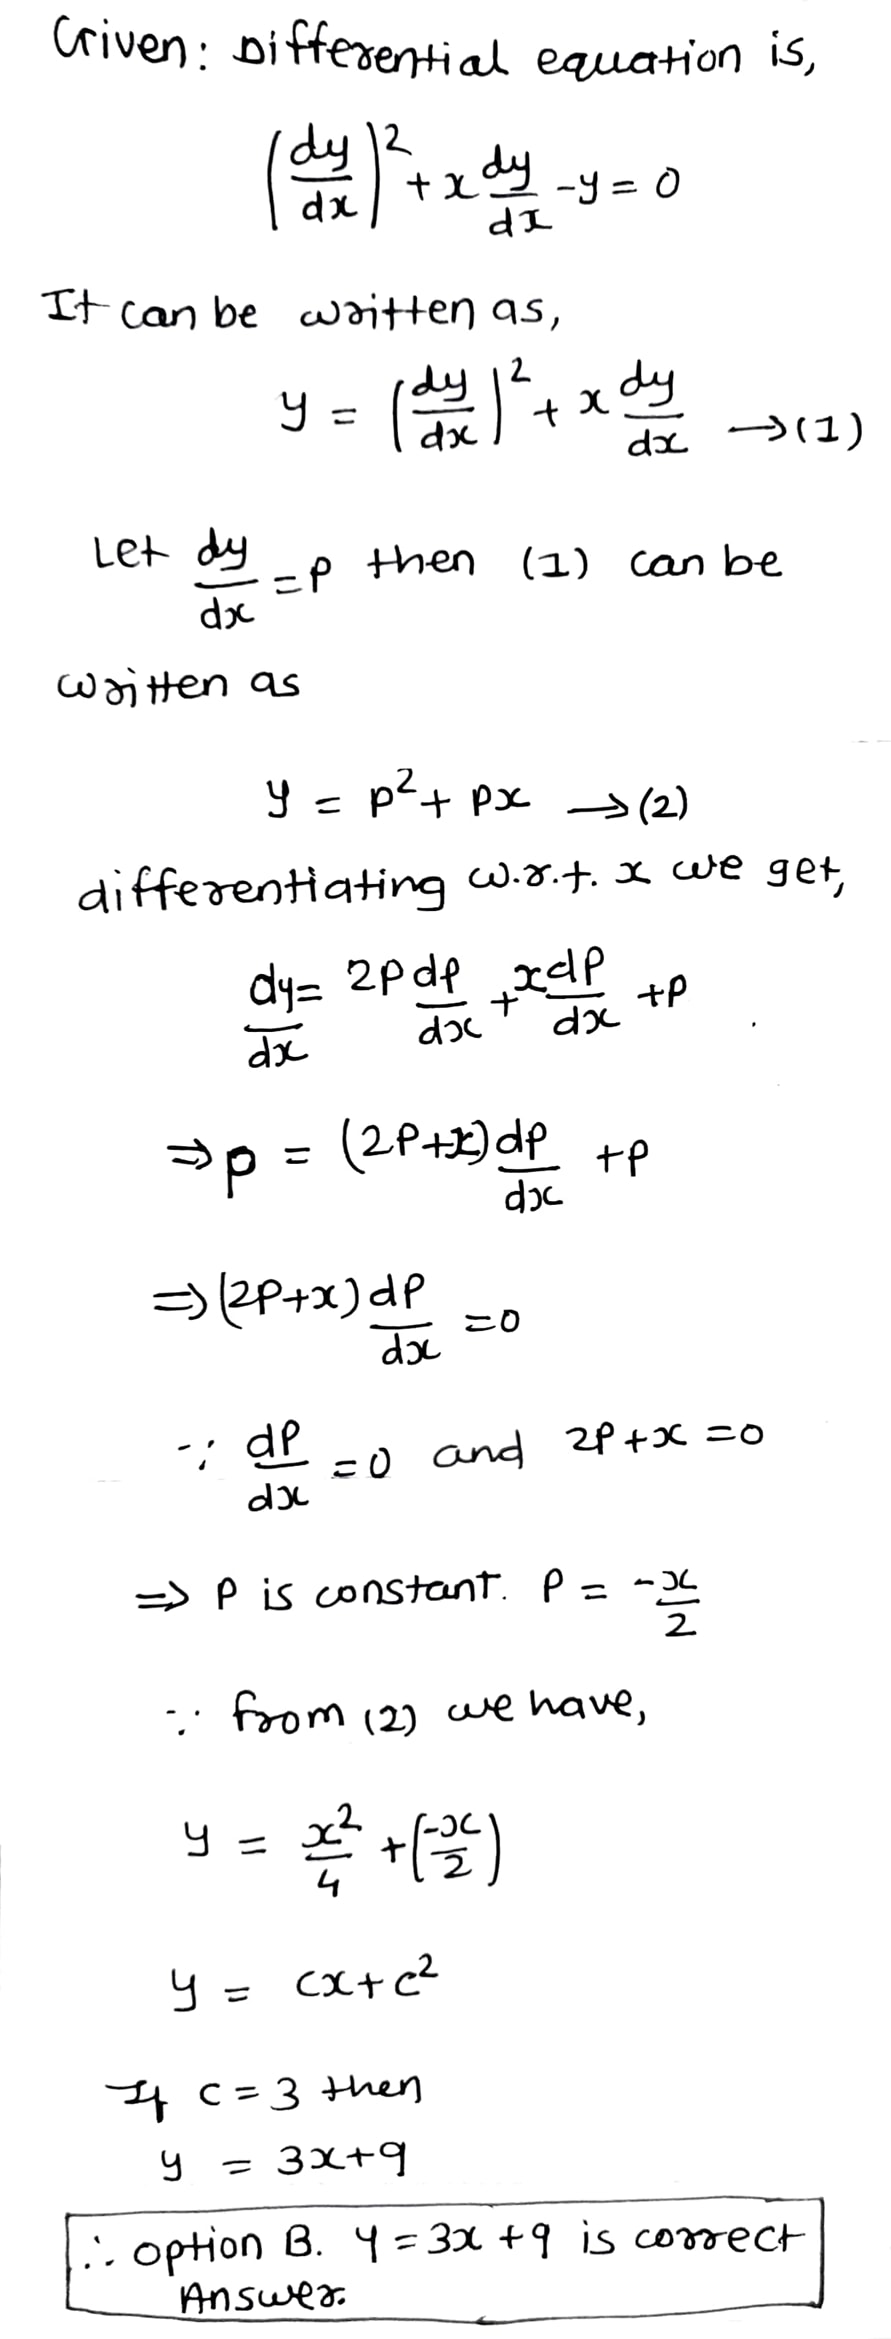 Given: Differential equation is,
(dy/dx)² + x dy/dx - y = 0
It can be written as,
y = (dy/dx)² + x dy/dx → (1)
Let dy/dx = P then (1) can be
written as
y = p² + px → (2)
differentiating w.r.t. x we get,
dy/dx = 2P dp/dx + x dp/dx + P
⇒ p = (2P+x) dp/dx + P
⇒ (2P+x) dp/dx = 0
∵ dP/dx = 0 and 2P + x = 0
⇒ P is constant. P = -x/2
∵ from (2) we have,
y = x²/4 + (-x/2)
y = cx + c²
If c = 3 then
y = 3x+9
∴ option B. y = 3x + 9 is correct
Answer.